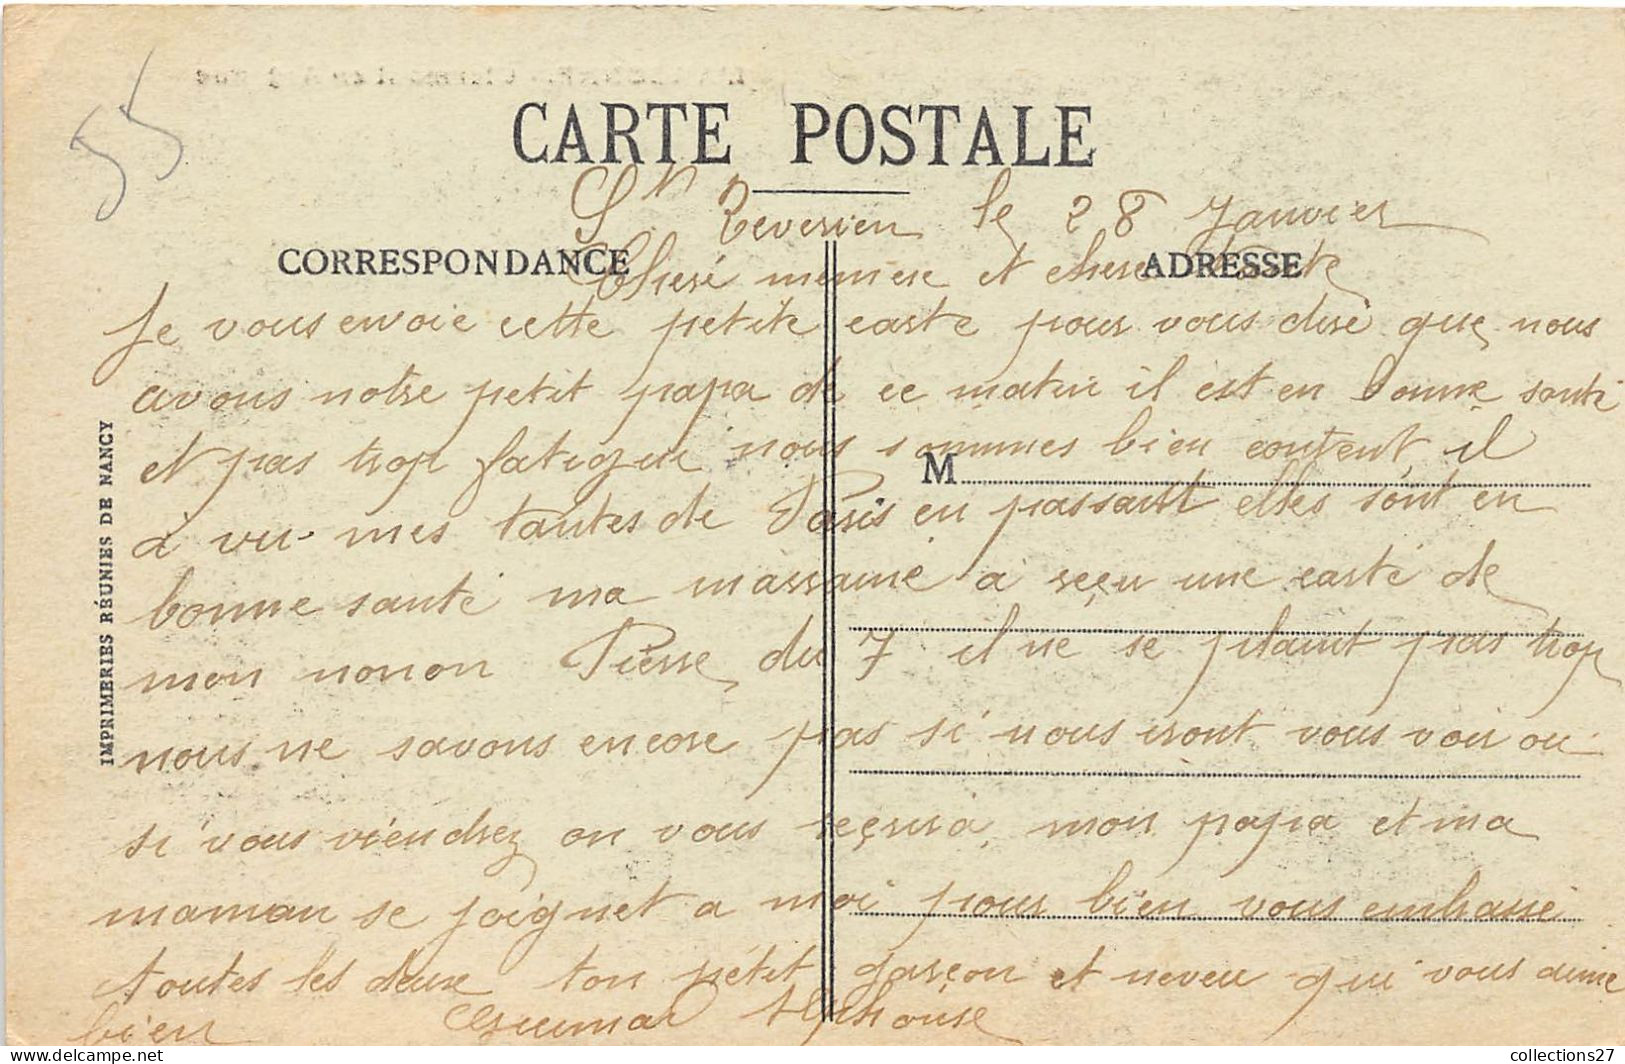 55
CARTE POSTALE
St Reverien le 28 Janvier
CORRESPONDANCE
ADRESSE
Cheré mémére et chere tante
Je vous envoie cette petite carte pour vous diré que nous
avons notre petit papa de ce matin il est en bonne santé
et pas trop fatigué nous sommes bien content il
M
à vu mes tantes de Paris en passant elles sont en
bonne santé ma marraine a reçu une carté de
mon nonon Pierre du 7 il ne se plaint pas trop
nous ne savons encore pas si nous iront vous voir ou
si vous viendrez on vous reçrira mon papa et ma
maman se joignet a moi pour bien vous embrassé
toutes les deux ton pétit garçon et neveu qui vous aime
bien Alphonse
IMPRIMERIES RÉUNIES DE NANCY
collections27